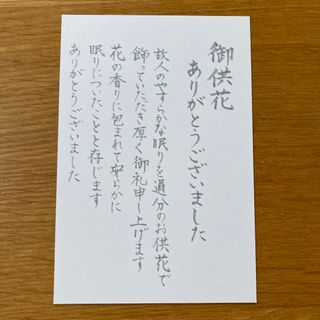 御供花
ありがとうございました
故人のやすらかな眠りを過分のお供花で
飾っていただき厚く御礼申し上げます
花の香りに包まれて安らかに
眠りについたことと存じます
ありがとうございました